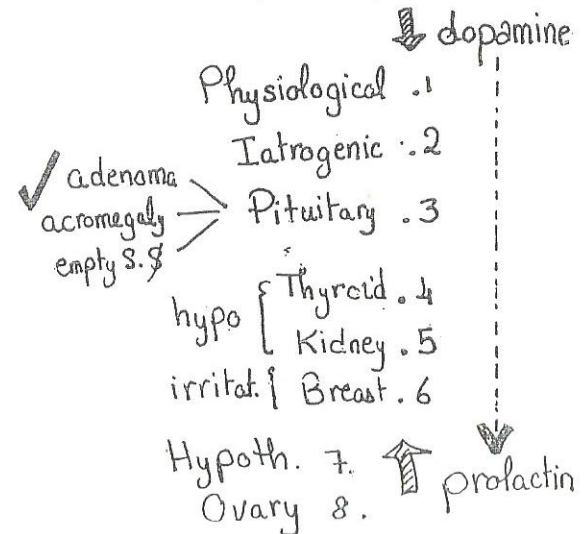 ⇓ dopamine
Physiological .1
Iatrogenic .2
✓ adenoma
acromegaly
empty S.S
Pituitary .3
hypo
Thyroid .4
Kidney .5
irritat.
Breast .6
Hypoth. 7.
Ovary 8.
⇑ prolactin